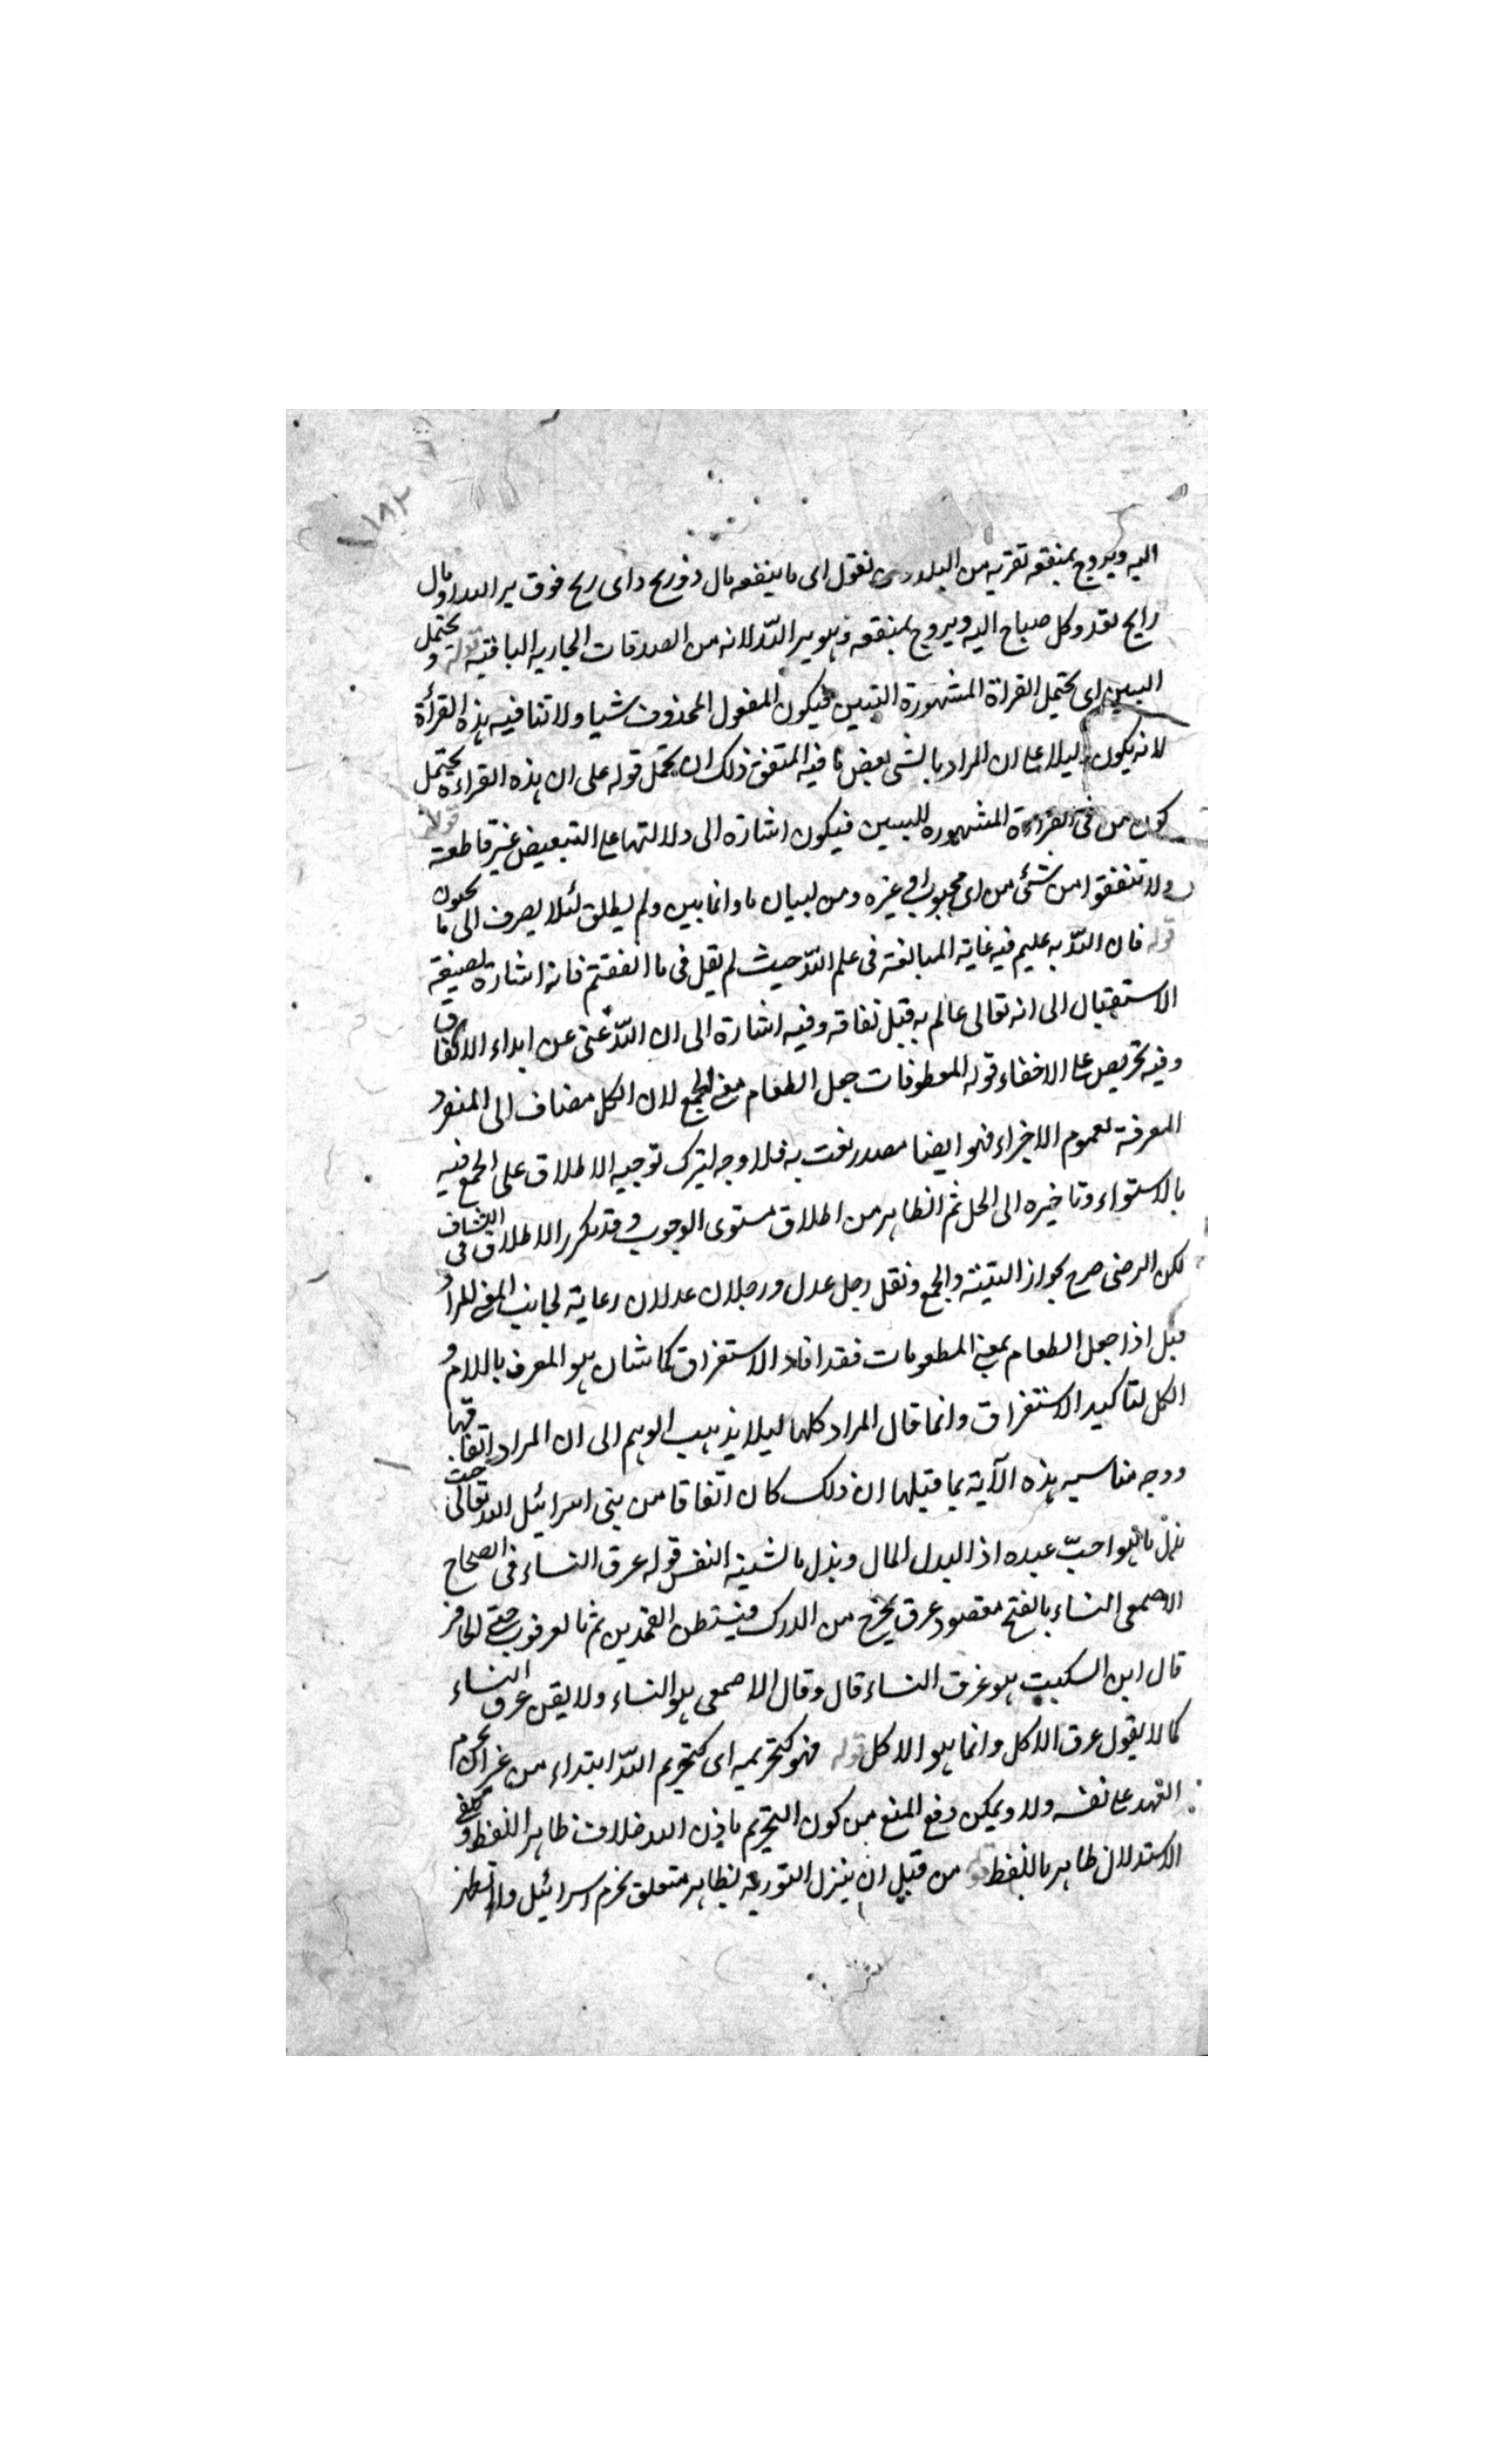 ١٨٢
اليه ويروج بمنفعه تقربه من البلد نقول اى ما ينفعه مال ذو ربح واى ربح فوق بر الله او مال
رايح يغدو كل صباح اليه ويروج بمنفعه وهو بر الله لانه من الصدقات الجاريه الباقيه قوله ويحتمل
التبيين اى يحتمل القراة المشهورة التبيين فيكون المفعول المحذوف شيا ولا تنافيه هذه القرأة
لانه يكون دليلا على ان المراد بالشى بعض ما فيه المتفق ذلك ان يحمل قوله على ان هذه القراءة يحتمل
كون من فى القراءة المشهوره للتبيين فيكون اشارة الى دلالتها على التبعيض غير قاطعة قوله
ولا تنفقوا من شئ من اى محبوب او غيره ومن لبيان ما وانما بين ولم يطلق لئلا يصرف الى ما تحبون
قوله فان الله به عليم فيه غاية المبالغة فى علم الله حيث لم يقل فى ما انفقتم فانه اشارة بصيغة
الاستقبال الى انه تعالى عالم به قبل نفاقه وفيه اشارة الى ان الله غنى عن ابداء الانفاق
وفيه تحريص على الاخفاء قوله المعطوفات جعل الطعام معنى الجمع لان الكل مضاف الى المفرد
المعرفة لعموم الاجزاء فهو ايضا مصدر نعت به فلا وجه لترك توجيه الاطلاق على الجمع فيه
بالاستواء وتاخيره الى الحل ثم الظاهر من اطلاق مستوى الوجوب وقد تكرر الاطلاق فى الكشاف
لكن الرضى صرح بجواز التثنية والجمع ونقل رجل عدل ورجلان عدلان رعاية لجانب المعنى المراد
قيل اذا جعل الطعام بمعنى المطعومات فقد افاد الاستغراق كما شان هو المعرف باللام و
الكل لتاكيد الاستغراق وانما قال المراد كلها ليلا يذهب الوهم الى ان المراد اتفاقها
ووجه مناسبه هذه الآية بما قبلها ان ذلك كان اتفاقا من بنى اسرائيل الله تعالى حيث
بذل ما هو احبّ عبده اذ البدل المال وبذل ما لشينه النفس قوله عرق النساء فى الصحاح
الاصمعى النساء بالفتح مقصود عرق يخرج من الورك فيستطن الفخذين ثم بالعرقوب حتى الحافر
قال ابن السكيت هو عرق النساء قال وقال الاصمعى هو النساء ولا يقن عرق النساء
كما لا يقول عرق الاكل وانما هو الاكل قوله فهو كتحريمه اى كتحريم الله ابتداء من غير تحريم
العهد على نفسه ولا ويمكن دفع المنع من كون التحريم باذن الله خلاف ظاهر اللفظ ويكفى
الاستدلال ظاهر باللفظ قوله من قبل ان ينزل التوريه لظاهر متعلق بحرم اسرائيل والظهر